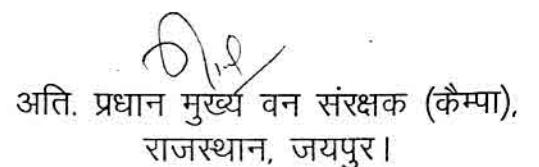 अति. प्रधान मुख्य वन संरक्षक (कैम्पा),
राजस्थान, जयपुर।